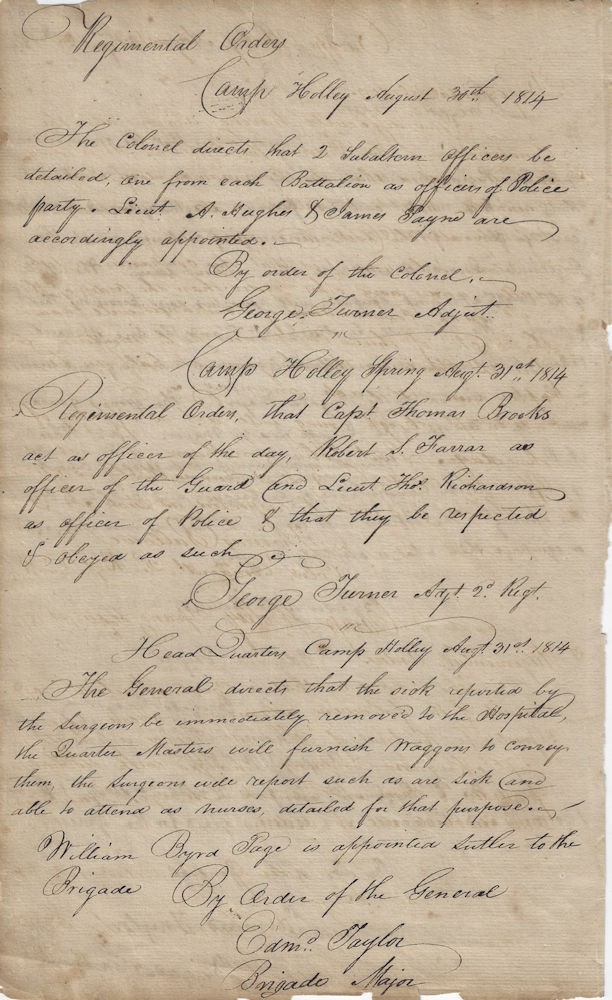 Regimental Orders
Camp Holley August 30th 1814
The Colonel directs that 2 Subaltern Officers be
detailed, one from each Battalion as officers of Police
party. Lieut. A. Hughes & James Payne are
accordingly appointed.
By order of the Colonel.
George Turner Adjut.
Camp Holley Spring Augt. 31st. 1814
Regimental Orders, that Capt Thomas Brooks
act as officer of the day, Robert S. Farrar as
officer of the Guard and Lieut Thos. Richardson
as officer of Police & that they be respected
& obeyed as such
George Turner Adjt. 2d. Regt.
Head Quarters Camp Holley Augt 31st. 1814
The General directs that the sick reported by
the Surgeons be immediately remov'd to the Hospital,
the Quarter Masters will furnish Waggons to convey
them, the Surgeons will report such as are sick and
able to attend as nurses, detailed for that purpose.
William Byrd Page is appointed Sutler to the
Brigade
By Order of the General
Edmd. Taylor
Brigade Major